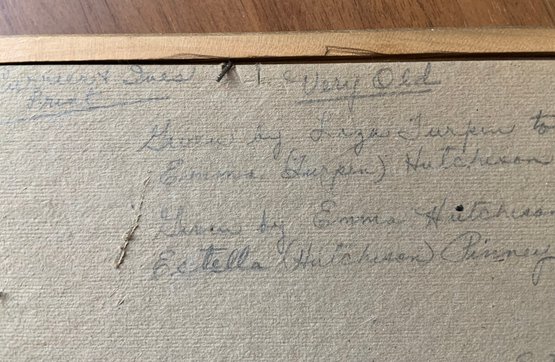 Currier & Ives Very Old
Print
Given by Liza Turpin to
Emma (Turpin) Hutcheson
Given by Emma Hutcheson
Estella (Hutcheson) Pinney